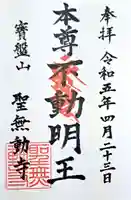 奉拝 令和五年四月二十三日
本尊不動明王
寳盤山 聖無動寺